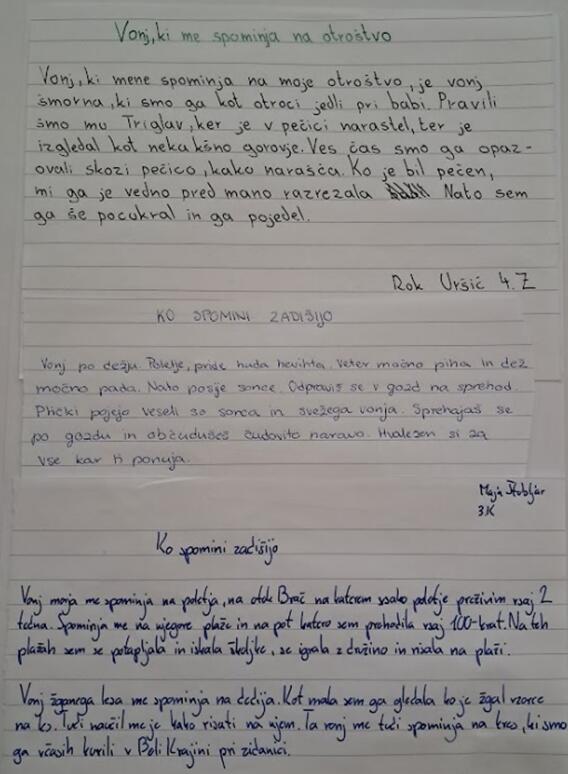 Vonj, ki me spominja na otroštvo
Vonj, ki mene spominja na moje otroštvo, je vonj
šmorna, ki smo ga kot otroci jedli pri babi. Pravili
smo mu Triglav, ker je v pečici narastel, ter je
izgledal kot nekakšno gorovje. Ves čas smo ga opaz-
ovali skozi pečico, kako narašča. Ko je bil pečen,
mi ga je vedno pred mano razrezala Nato sem
ga še pocukral in ga pojedel.
Rok Uršič 4. Z
KO SPOMINI ZADIŠIJO
Vonj po dežju. Poletje, pride huda nevihta. Veter močno piha in dež
močno pada. Nato posije sonce. Odpraviš se v gozd na sprehod.
Ptički pojejo veseli so sonca in svežega vonja. Sprehajaš se
po gozdu in občuduješ čudovito naravo. Hvalezen si za
vse kar ti ponuja.
Maja Škobljar
3K
Ko spomini zadišijo
Vonj morja me spominja na poletja, na otok Brač na katerem vsako poletje preživim vsaj 2
tedna. Spominja me na njegove plaže in na pot katero sem prehodila vsaj 100-krat. Na teh
plažah sem se potapljala in iskala školjke, se igrala z družino in risala na plaži.
Vonj žganega lesa me spominja na dedija. Kot mala sem ga gledala ko je žgal vzorce
na les. Tudi naučil me je kako risati na njem. Ta vonj me tudi spominja na kres, ki smo
ga včasih kurili v Beli Krajini pri zidanici.